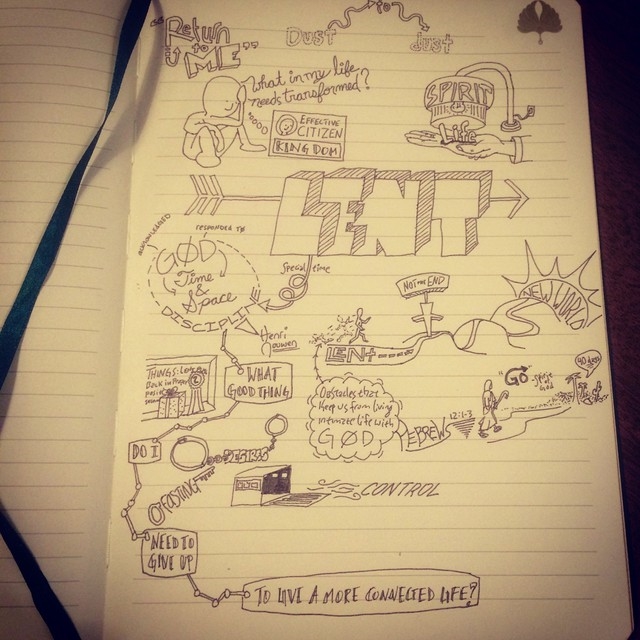 "Return
to
ME"
Dust
to
Just
What in my life
needs transformed?
EFFECTIVE
CITIZEN
KINGDOM
SPIRIT
Life
LENT
ACKNOWLEDGED
RESPONDED TO
GOD
Time
&
Space
DISCIPLINE
Special time
Henri
Nouwen
NOT THE END
NEW WORLD
LENT
THINGS:
Back in
WHAT
GOOD THING
Obstacles that
keep us from living
intimate life with
GOD
HEBREWS 12:1-3
"GO
40 days
DO I
DESIRES
CONTROL
NEED TO
GIVE UP
TO LIVE A MORE CONNECTED LIFE?